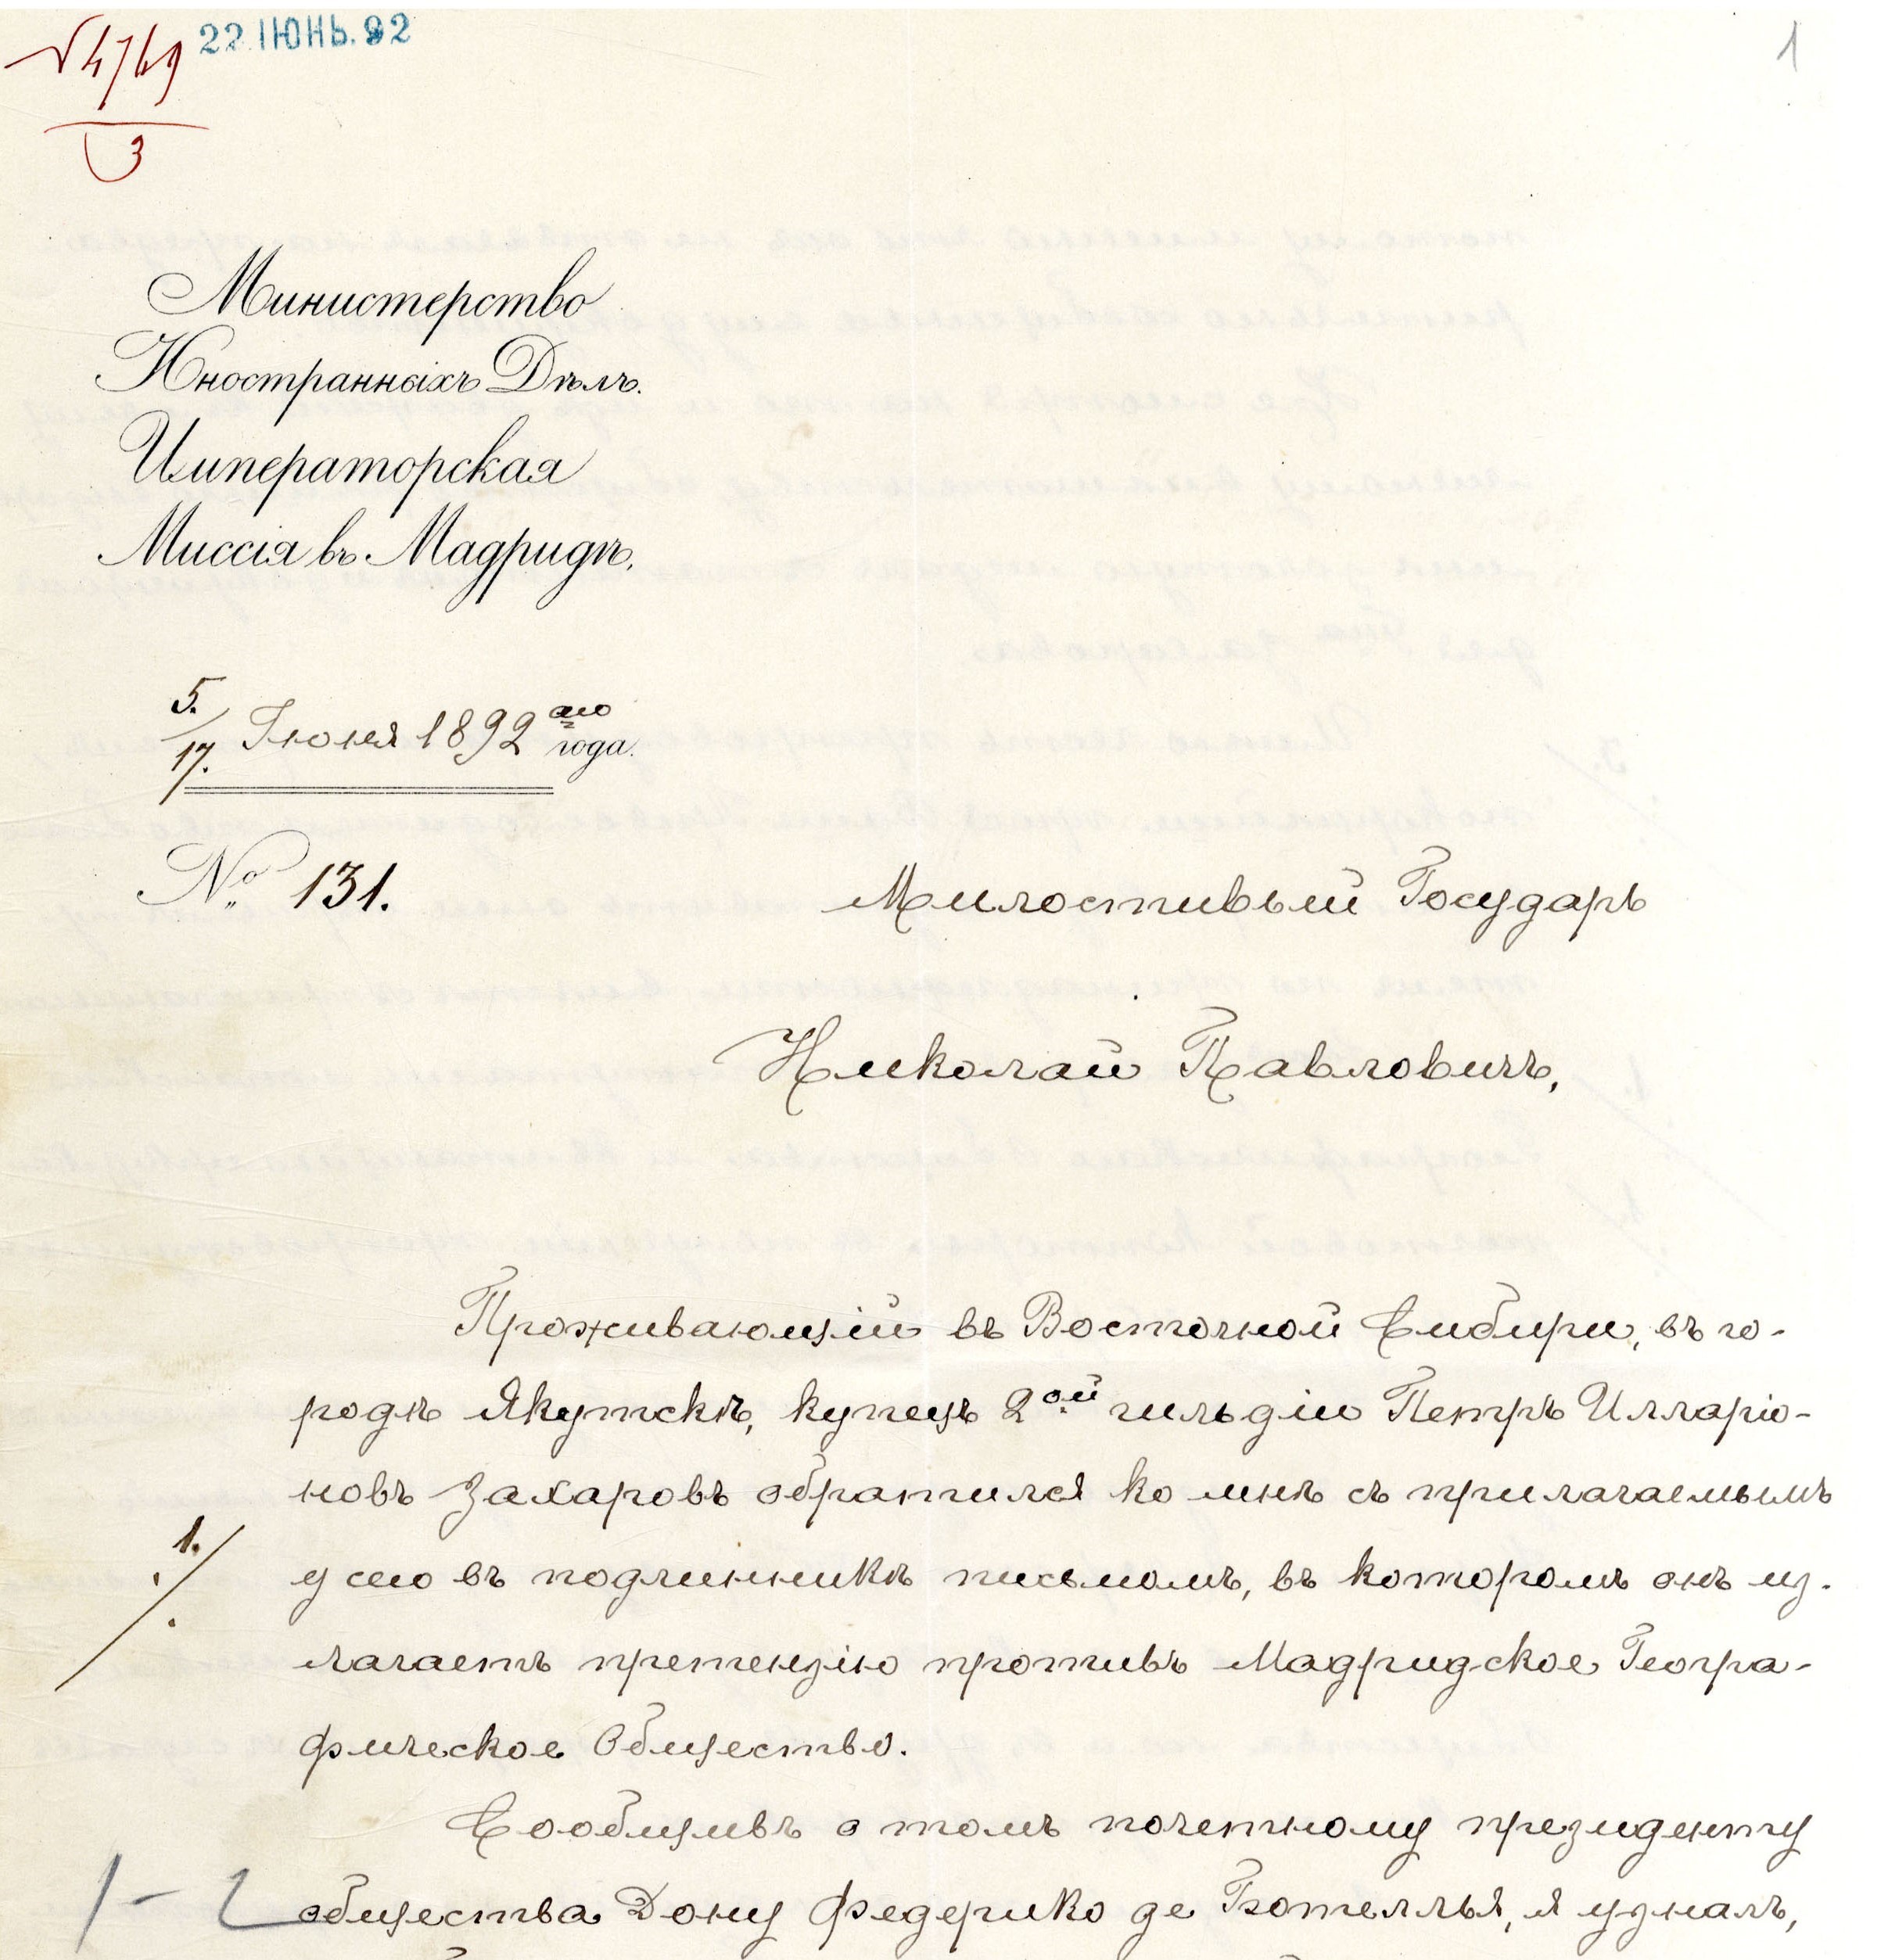 № 4769
3
22 ІЮНЬ.92
1
Министерство
Иностранныхъ Дѣлъ.
Императорская
Миссія въ Мадридѣ.
5./17. Іюня 1892аго года.
№ 131.
Милостивый Государь
Николай Павловичъ,
Проживающій въ Восточной Сибири, въ го-
родѣ Якутскѣ, купецъ 2ой гильдіи Петръ Илларіо-
новъ Захаровъ обратился ко мнѣ съ прилагаемымъ
1.
у сего въ подлинникѣ письмомъ, въ которомъ онъ из-
лагаетъ претензію противъ Мадридское Геогра-
фическое Общество.
Сообщивъ о томъ почетному президенту
1-2
общества Дону Федерико де Ботеллья, я узналъ,